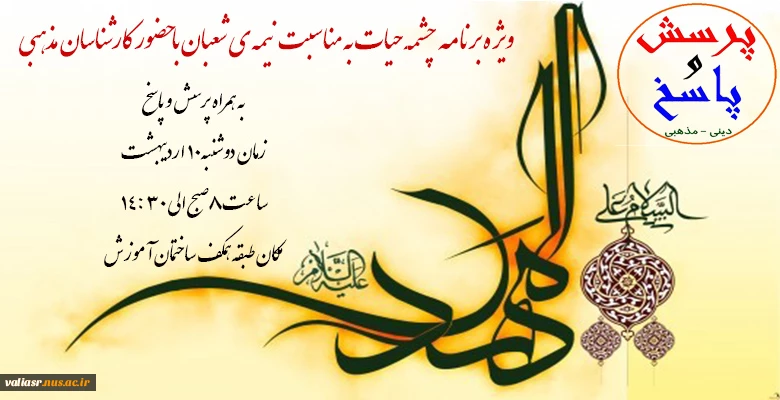 ویژه برنامه چشمه حیات به مناسبت نیمه ی شعبان با حضور کارشناسان مذهبی
به همراه پرسش و پاسخ
زمان دوشنبه ۱۰ اردیبهشت
ساعت ۸ صبح الی ۱۴:۳۰
مکان طبقه همکف ساختمان آموزش
پرسش
و
پاسخ
دینی - مذهبی
السلام علی
المهدی
علیه السلام
valiasr.nus.ac.ir